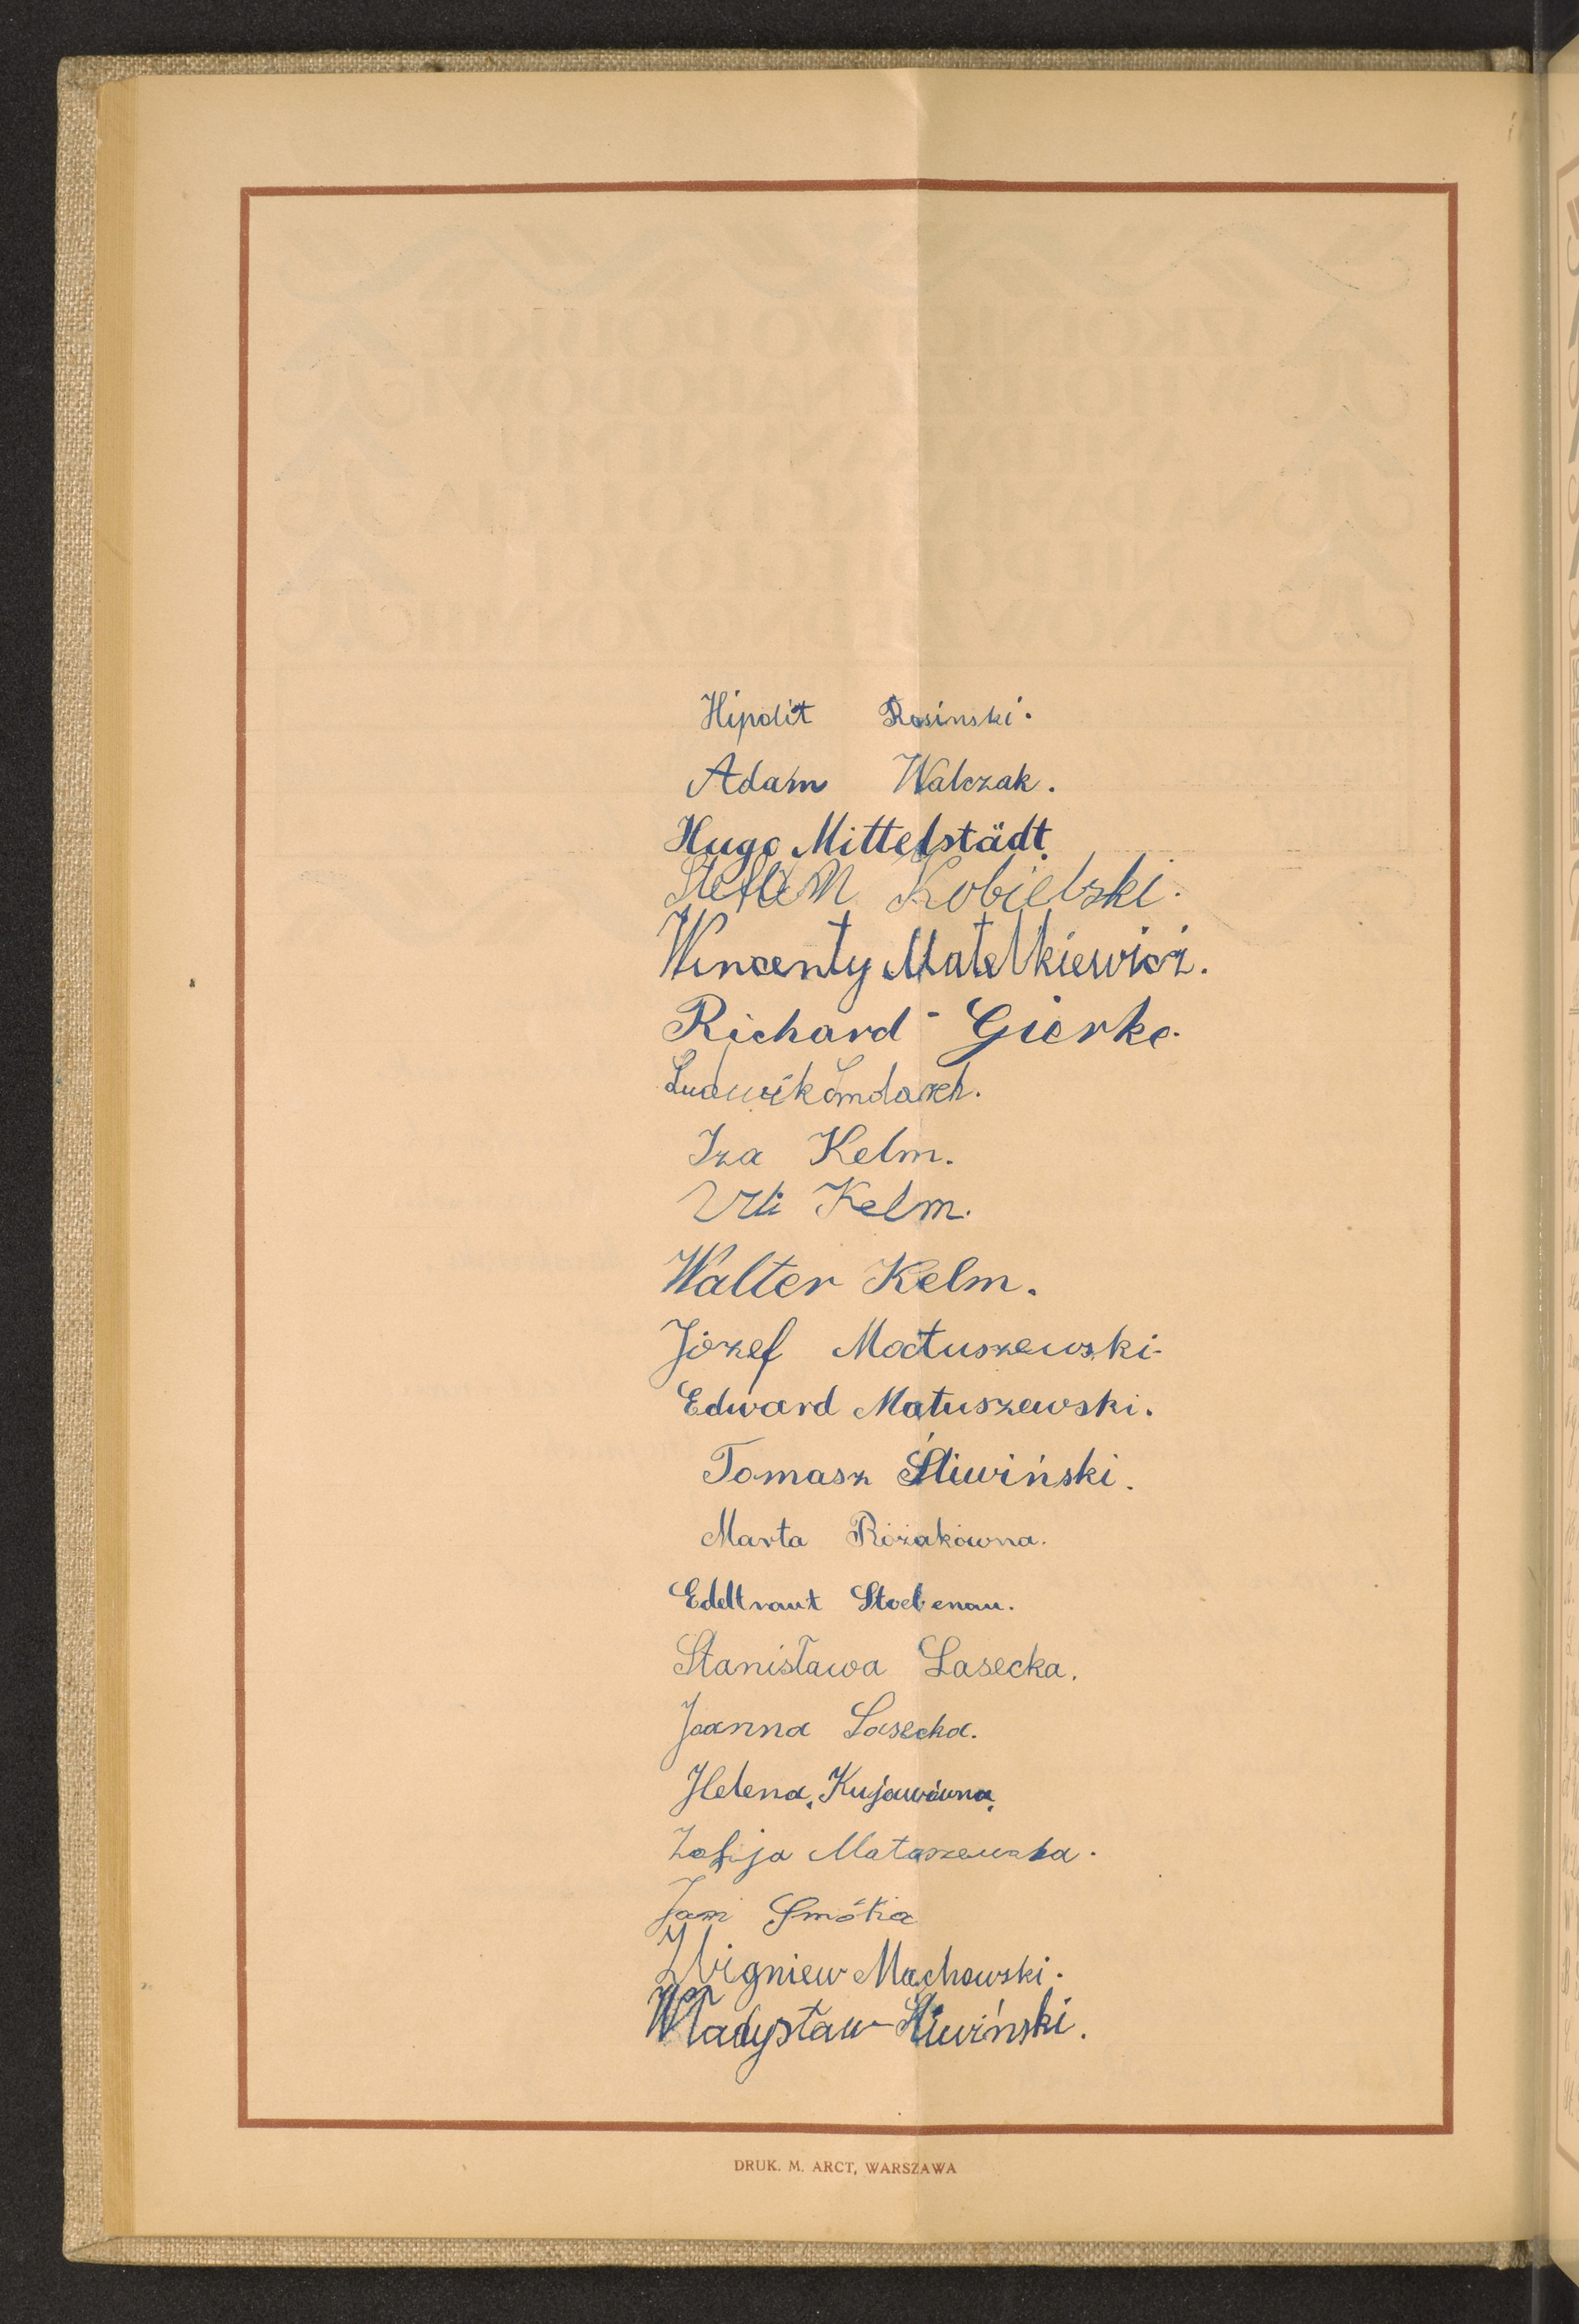 Hipolit Rosinski.
Adam Walczak.
Hugo Mittelstädt.
Stefan Kobielski.
Wincenty Matelkiewicz.
Richard Gierke.
Ludwik
Iza Kelm.
Kelm.
Walter Kelm.
Józef Matuszewski.
Edward Matuszewski.
Tomasz Śliwiński.
Marta Różakówna.
Edeltraut Stoebenau.
Stanisława Lasecka.
Joanna Lasecka.
Helena Kujawówna.
Zofija Mataszewska.
Jan
Zbigniew Machowski.
Władysław Śliwiński.
DRUK. M. ARCT, WARSZAWA